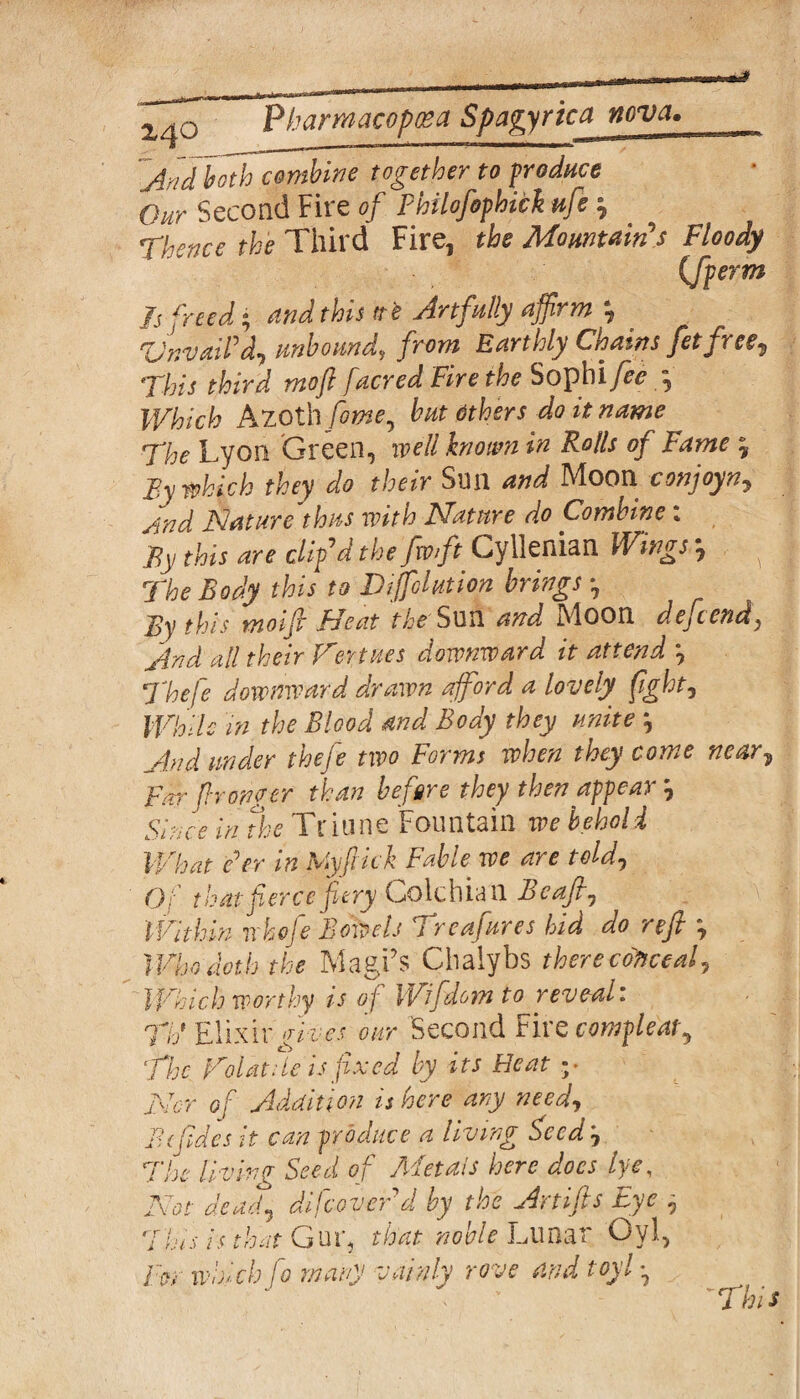 240 Pharmacopœa Spagyrica nova.
And both combine together to produce
Our Second Fire of Philoſophick uſe;
Thence the Third Fire, the Mountain's Floody
(ſperm
Is freed; and this we Artfully affirm;
Unvail'd, unbound, from Earthly Chains ſet free,
This third moſt ſacred Fire the Sophi ſee;
Which Azoth ſome, but others do it name
The Lyon Green, well known in Rolls of Fame;
By which they do their Sun and Moon conjoyn,
And Nature thus with Nature do Combine:
By this are clip'd the ſwift Cyllenian Wings;
The Body this to Diſſolution brings;
By this moiſt Heat the Sun and Moon deſcend,
And all their Vertues downward it attend;
Theſe downward drawn afford a lovely ſight,
While in the Blood and Body they unite;
And under theſe two Forms when they come near,
Far ſtronger than before they then appear;
Since in the Triune Fountain we behold
What e'er in Myſtick Fable we are told,
Of that fierce fiery Colchian Beaſt,
Within whoſe Bowels Treaſures hid do reſt;
Who doth the Magi's Chalybs there conceal,
Which worthy is of Wiſdom to reveal:
Th' Elixir gives our Second Fire compleat,
The Volatile is fixed by its Heat;
Nor of Addition is here any need,
Beſides it can produce a living Seed;
The living Seed of Metals here does lye,
Not dead, diſcover'd by the Artiſts Eye;
This is that Gur, that noble Lunar Oyl,
For which ſo many vainly rove and toyl;
This